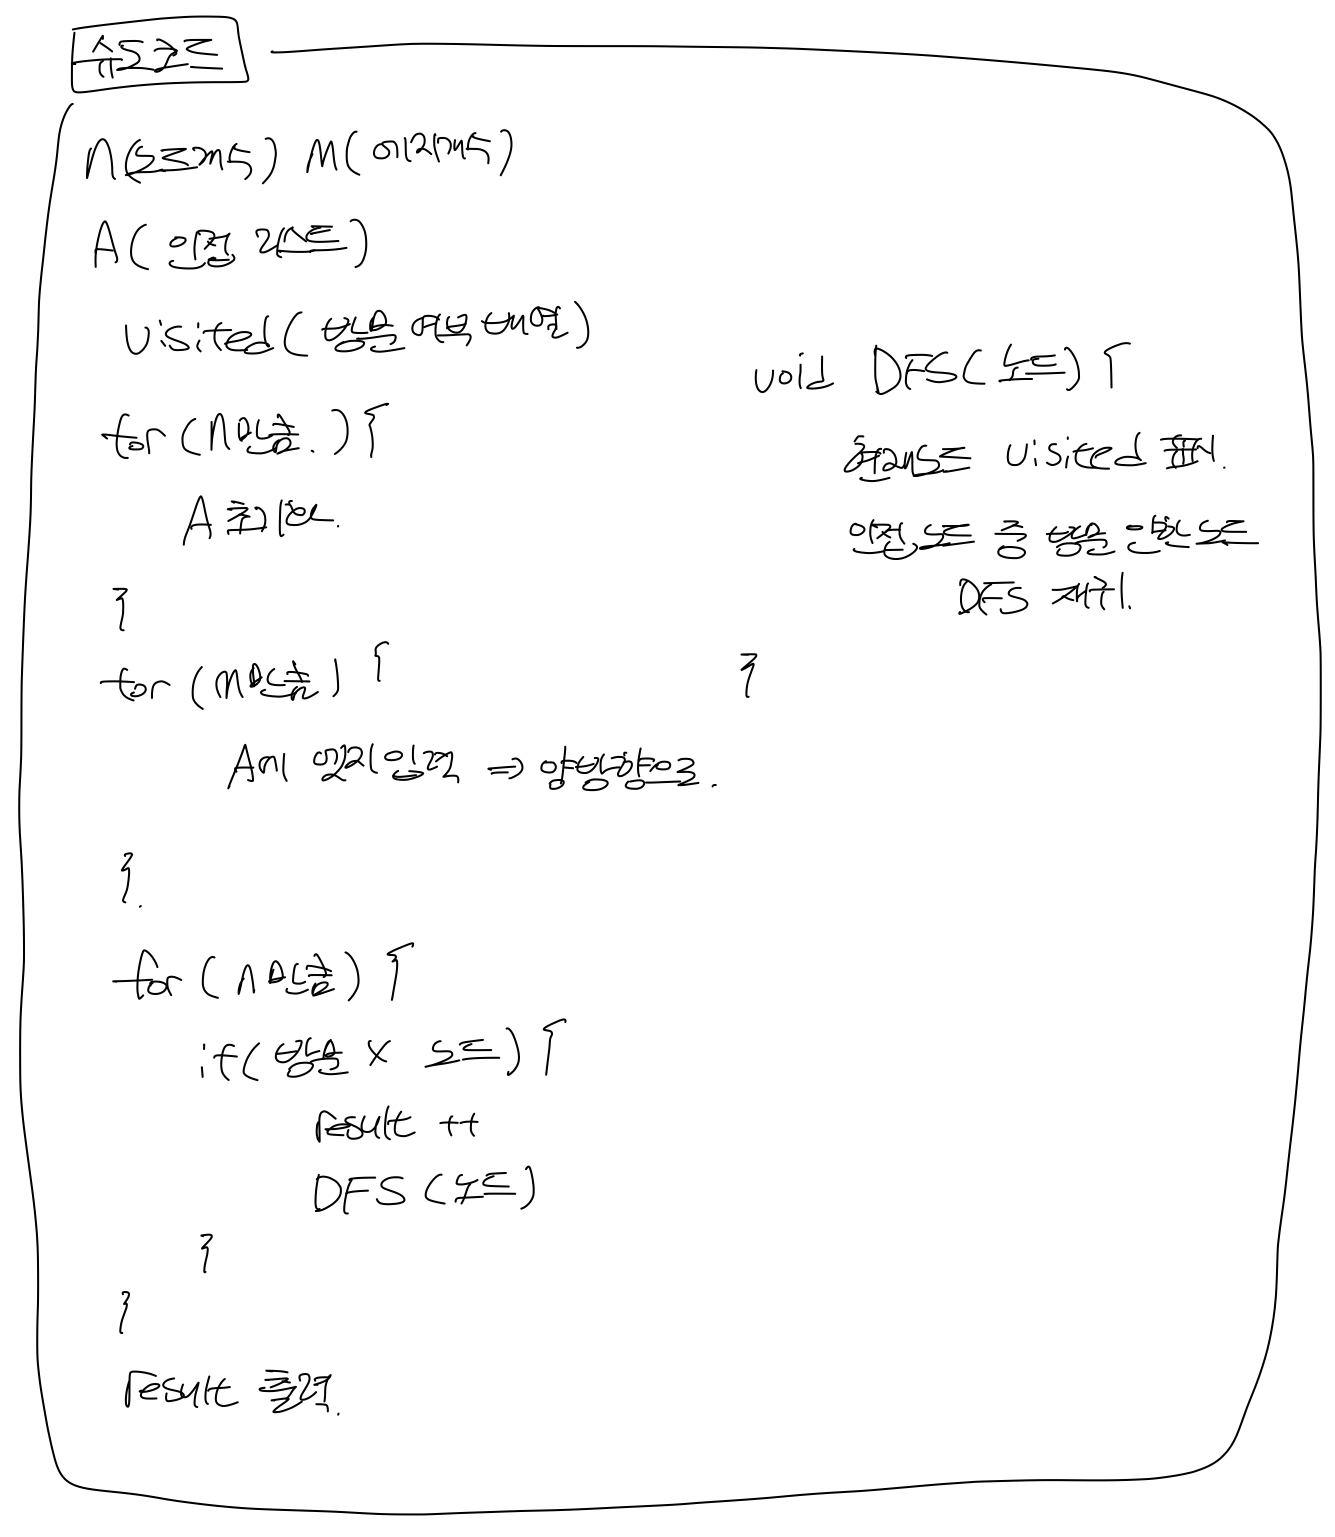 슈도코드
n(노드개수) m(에지개수)
A(인접 리스트)
visited(방문 여부 배열)
for (n만큼.) {
A 초기화.
}
for (m만큼) {
A에 엣지입력 ⇒ 양방향으로.
}.
for (n만큼) {
if(방문 x 노드) {
result ++
DFS (노드)
}
}
result 출력.
void DFS(노드) {
현재노드 visited 표시.
인접노드 중 방문 안한 노드
DFS 재귀.
}